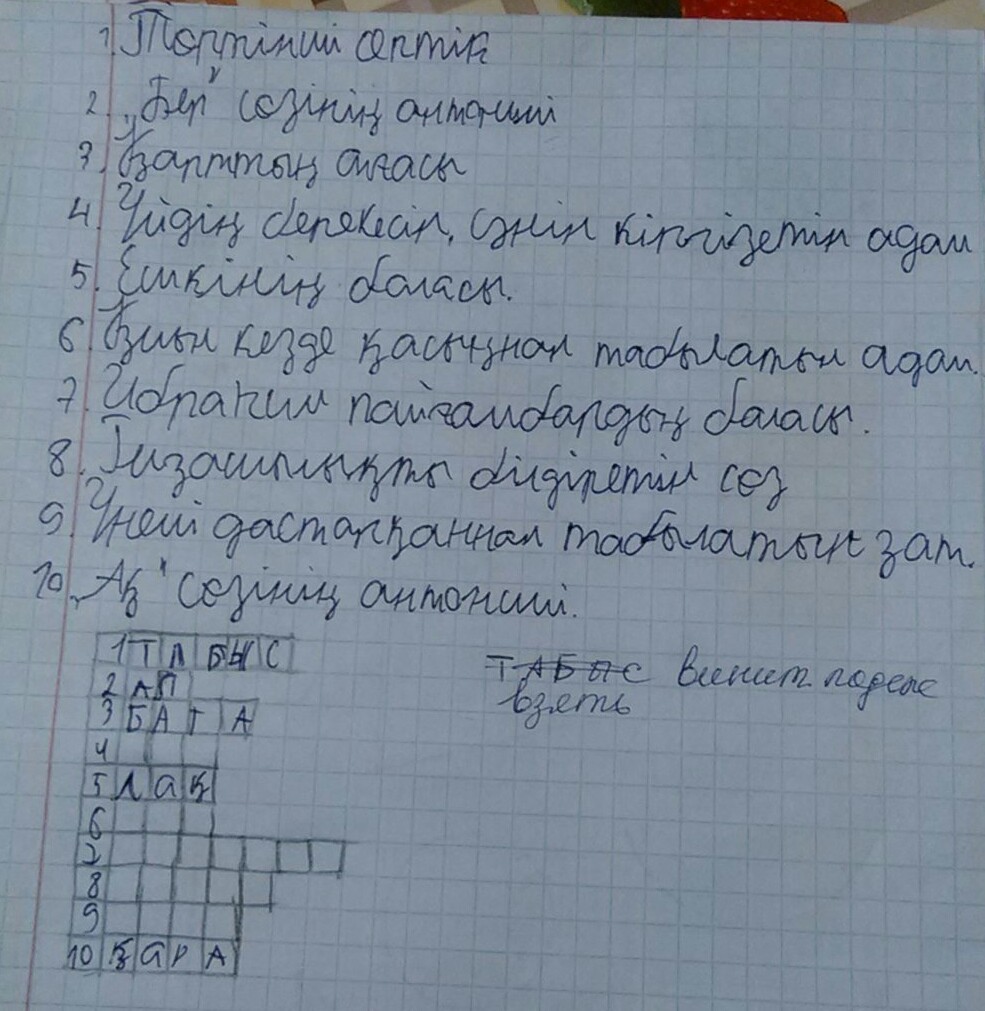 1. Төртінші септік
2. „Бер" сөзінің антонимі
3. Қарттың ағасы
4. Үйдің берекесін, сәнін кіргізетін адам
5. Ешкінің баласы.
6. Қиын кезде қасыңнан табылатын адам.
7. Ибраһим пайғамбардың баласы.
8. Ризашылықты білдіретін сөз
9. Үнемі дастарқаннан табылатын зат.
10. „Ақ" сөзінің антонимі.
1 Т А Б Ы С
2 А Л
3 Б А Т А
4
5 Л а қ
6
7
8
9
10 Қ а р А
ТАБЫС Винит. падеж
взять